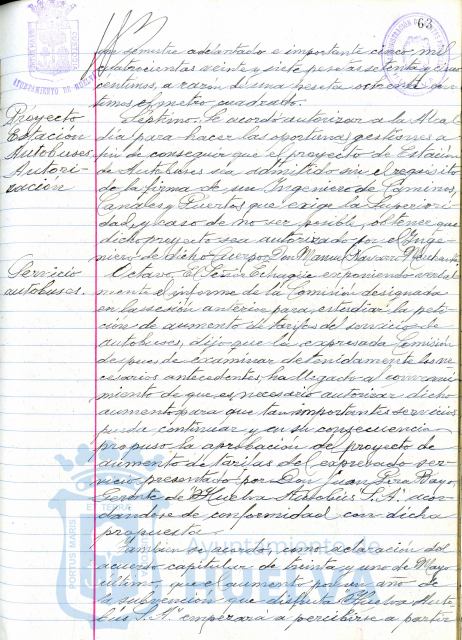 63
AYUNTAMIENTO DE HUELVA
por semestre adelantado e importante cinco mil
cuatrocientas veinte y siete pesetas setenta y cinco
céntimos, a razón de una peseta ochenta cén-
timos el metro cuadrado.
Proyecto
Estación
Autobuses
Autori-
zación
Septimo. Se acordó autorizar a la Alcal
día para hacer las oportunas gestiones a
fin de conseguir que el proyecto de Estación
de Autobuses sea admitido sin el requisito
de la firma de un Ingeniero de Caminos,
Canales y Puertos que exige la Superiori-
dad, y caso de no ser posible, obtener que
dicho proyecto sea autorizado por el Inge-
niero de dicho Cuerpo, Don Manuel
Servicio
autobuses.
Octavo. El Señor exponiendo verbal
mente el informe de la Comisión designada
en la sesión anterior para estudiar la peti-
ción de aumento de tarifas del servicio de
autobuses, dijo que la expresada Comisión
despues de examinar detenidamente los ne-
cesarios antecedentes, ha llegado al convenci-
miento de que es necesario autorizar dicho
aumento para que tan importantes servicios
pueda continuar y en su consecuencia
propuso la aprobación de proyecto de
aumento de tarifas del expresado ser-
vicio presentado por Don Juan Pere Bayo,
Gerente de "Huelva Autobus S.A." acor-
dandose de conformidad con dicha
propuesta.
Tambien se acordó, como aclaración del
acuerdo capitular de treinta y uno de Mayo
ultimo, que el aumento por un año de
la subvención que disfruta "Huelva Auto-
bús S.A." empezara a percibirse a partir
PORTUS MARIS ET TERRAE
Ayuntamiento de
HUELVA